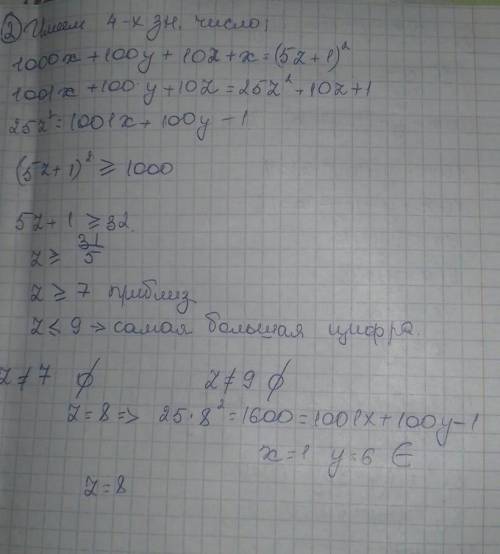 ② Имеем 4-х зн. число;
1000x + 100y + 10z + x = (5z + 1)²
1001x + 100y + 10z = 25z² + 10z + 1
25z² = 1001x + 100y - 1
(5z + 1)² ≥ 1000
5z + 1 ≥ 32.
z ≥ 31/5
z ≥ 7 приблиз
z ≤ 9 → самая большая цифра.
z ≠ 7 ∅ z ≠ 9 ∅
z = 8 => 25 · 8² = 1600 = 1001x + 100y - 1
x = 1 y = 6 ∈
z = 8